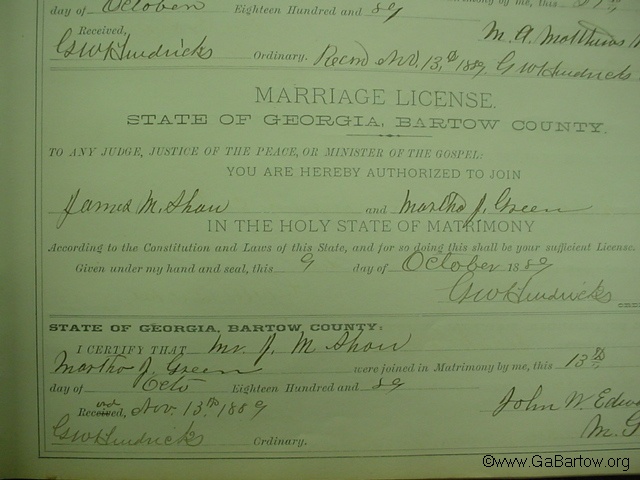 day of October Eighteen Hundred and 89
Received,
M. A. Matthews
GW Hendricks Ordinary. Record Nov. 13th 1889 GW Hendricks
MARRIAGE LICENSE.
STATE OF GEORGIA, BARTOW COUNTY.
TO ANY JUDGE, JUSTICE OF THE PEACE, OR MINISTER OF THE GOSPEL:
YOU ARE HEREBY AUTHORIZED TO JOIN
James M. Shaw and Martha J. Green
IN THE HOLY STATE OF MATRIMONY
According to the Constitution and Laws of this State, and for so doing this shall be your sufficient License.
Given under my hand and seal, this 9 day of October 1889
GW Hendricks
STATE OF GEORGIA, BARTOW COUNTY:
I CERTIFY THAT Mr. J. M Shaw
Martha J. Green were joined in Matrimony by me, this 13th
day of Octo Eighteen Hundred and 89
John W. Edwa
Received, Nov. 13th 1889
M. G
GW Hendricks Ordinary.
©www.GaBartow.org